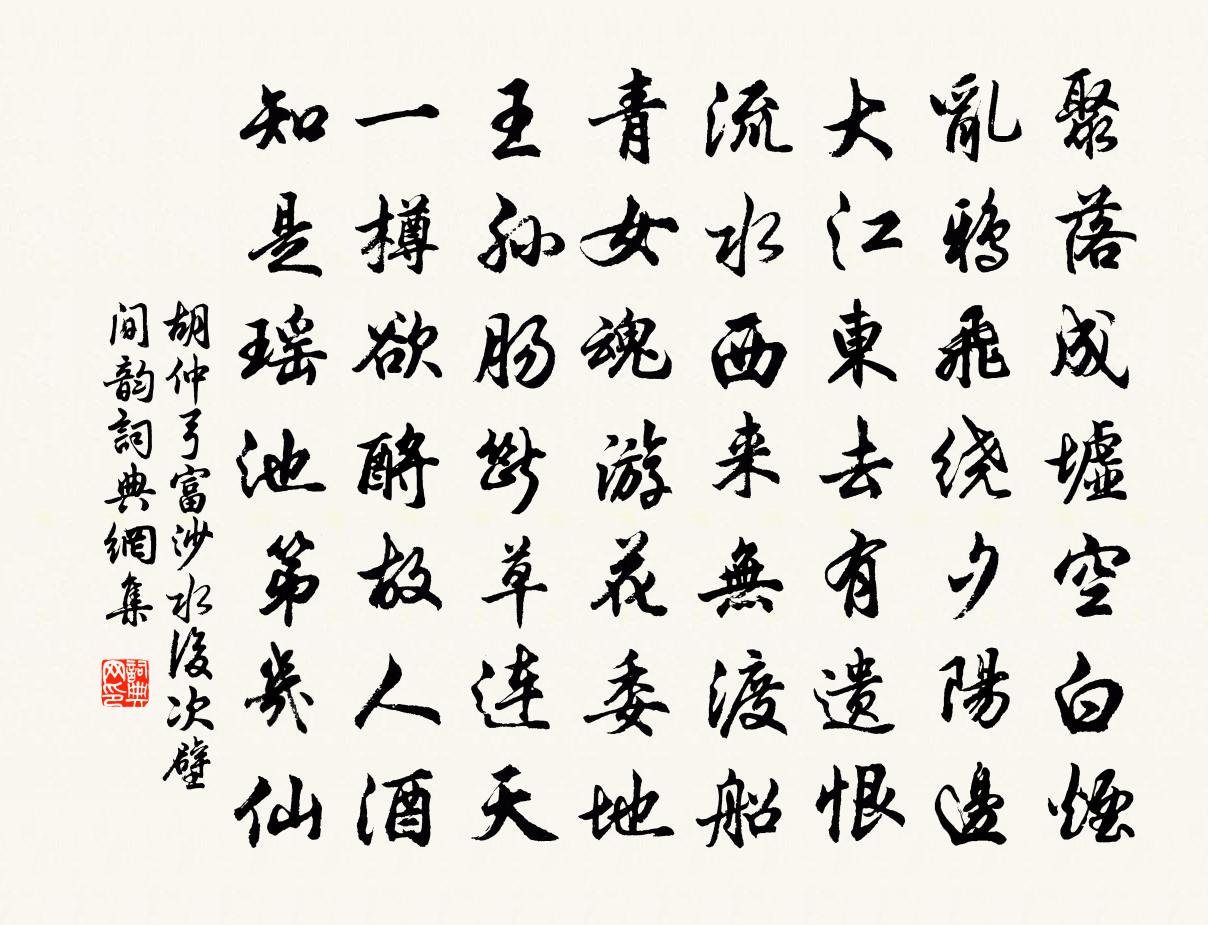 聚落成墟空白煙
亂鴉飛绕夕陽邊
大江東去有遗恨
流水西来無渡船
青女魂游花委地
王孙肠斷草连天
一樽欲酹故人酒
知是瑶池第幾仙
胡仲弓富沙水後次壁
间韵詞典網集
詞典
网印